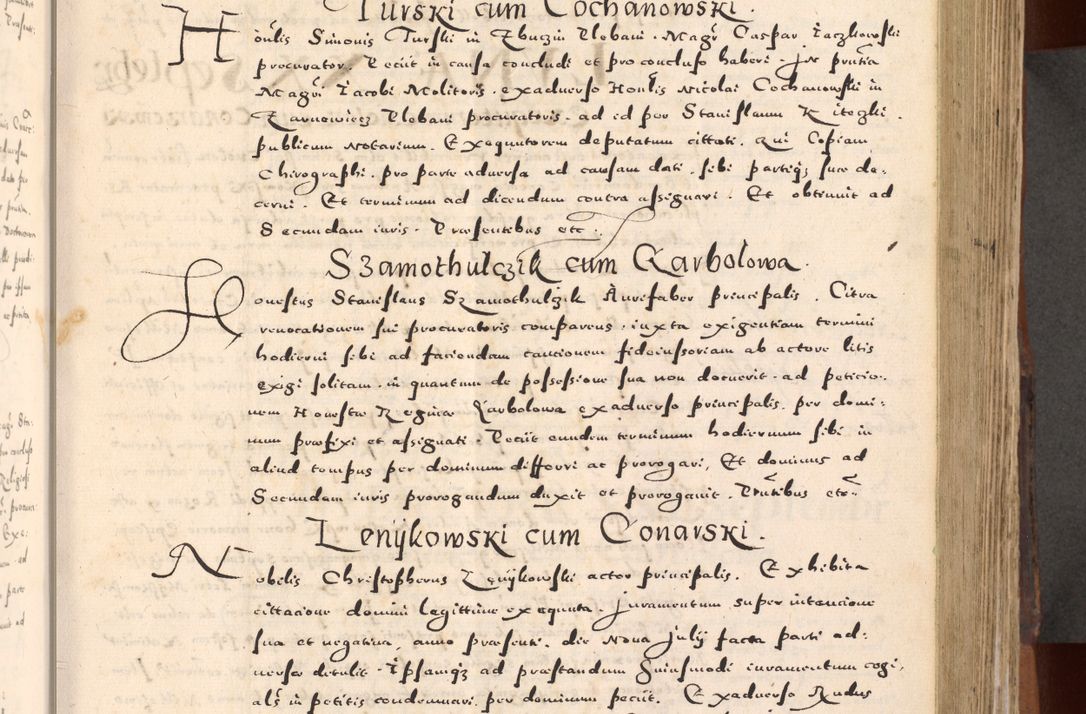 Turski cum Cochanowski.
Honlis Simonis Turski in Zbuczin Plebani. Magr Caspar Iaczkowski
procurator. Peciit in causa concludi et pro concluso haberi. In pntia
Magri Iacobi Molitoris. exadverso Honlis Nicolai Cochanowski in
Zarnowiecz Plebani procuratoris. ad id per Stanislaum Kiteczki.
publicum Notarium. Exequutorem deputatum cittati. qui Copiam
Chirographi. pro parte adversa ad causam dati. sibi partiq; suæ de:
cerni. Et terminum ad dicendum contra assignari. Et obtinuit ad
Secundam iuris. Præsentibus etc.
Szamothulczik cum Karbolowa.
Honestus Stanislaus Szamothulczik Aurifaber principalis. Citra
revocationem sui procuratoris comparens. iuxta exigentiam termini
hodierni sibi ad faciendam cautionem fideiussoriam ab actore litis
exigi solitam. in quantum de possessione sua non docuerit. ad peticio:
nem Honestæ Reginæ Karbolowa exadverso principalis. per domi:
num præfixi et assignati. Peciit eundem terminum hodiernum sibi in
aliud tempus per dominum differri ac prorogari, Et dominus ad
Secundam iuris prorogandum duxit et prorogavit. Pntibus etc.
Lenijkowski cum Conarski.
Nobilis Christopherus Lenijkowski actor principalis. Exhibita
cittacione domini legittime exequuta. juramentum super intencione
sua et negativa, anno præsenti. die Nona Julij facta parti ad:
versæ detulit. Ipsamq; ad præstandum huiusmodi iuramentum cogi,
als in petitis condemnari. per dominum peciit. Exadverso Nudus